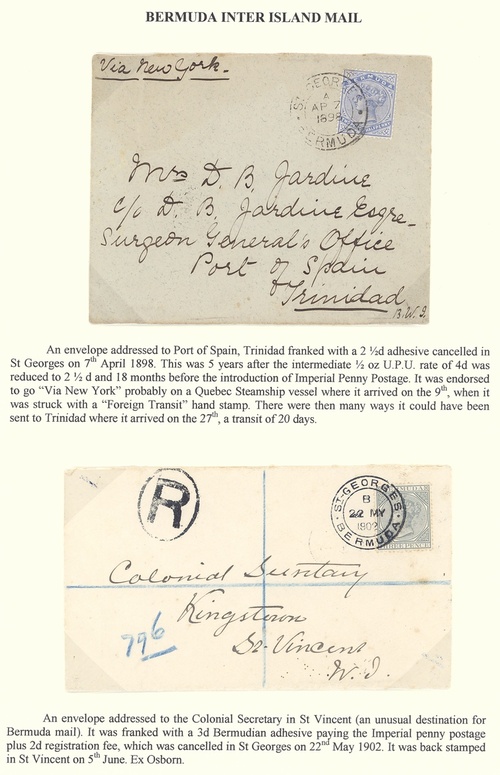 BERMUDA INTER ISLAND MAIL
Via New York.
ST GEORGES
A
AP 7
1898
BERMUDA
Mrs D. B. Jardine
c/o D. B. Jardine Esqre
Surgeon General's Office
Port of Spain
Trinidad
B.W.I.
An envelope addressed to Port of Spain, Trinidad franked with a 2 ½d adhesive cancelled in
St Georges on 7th April 1898. This was 5 years after the intermediate ½ oz U.P.U. rate of 4d was
reduced to 2 ½ d and 18 months before the introduction of Imperial Penny Postage. It was endorsed
to go "Via New York" probably on a Quebec Steamship vessel where it arrived on the 9th, when it
was struck with a "Foreign Transit" hand stamp. There were then many ways it could have been
sent to Trinidad where it arrived on the 27th, a transit of 20 days.
R
ST. GEORGES
B
22 MY
1902
BERMUDA
Colonial Secretary
Kingstown
St. Vincent
W. I.
796
An envelope addressed to the Colonial Secretary in St Vincent (an unusual destination for
Bermuda mail). It was franked with a 3d Bermudian adhesive paying the Imperial penny postage
plus 2d registration fee, which was cancelled in St Georges on 22nd May 1902. It was back stamped
in St Vincent on 5th June. Ex Osborn.